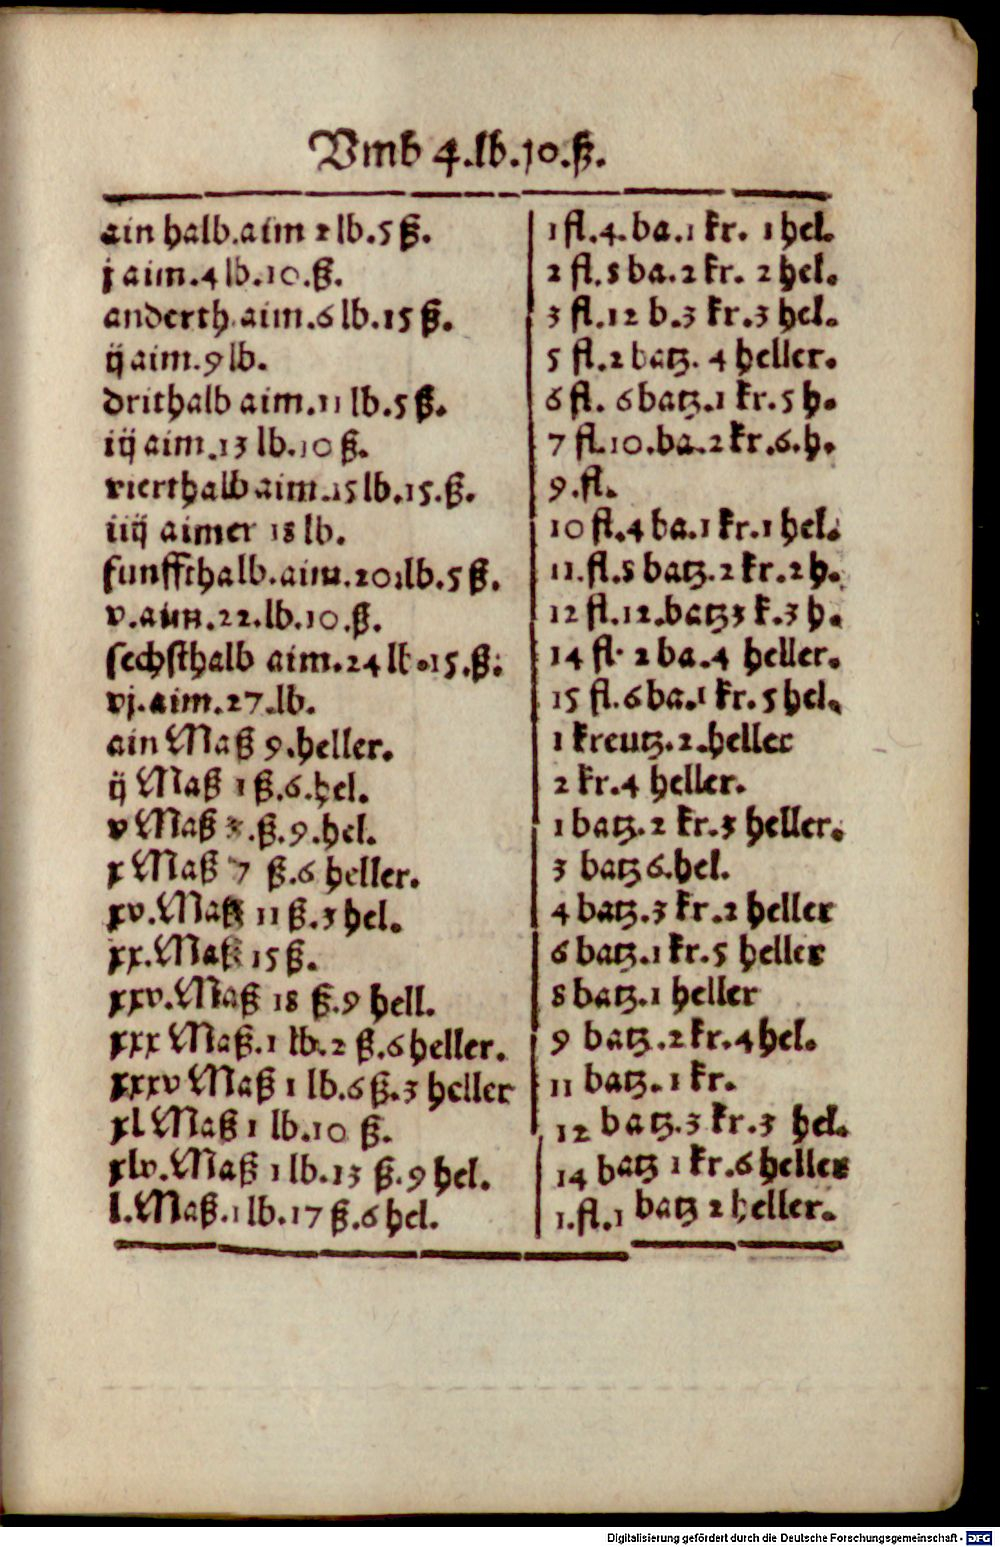 Vmb 4.lb.10.ß.
ain halb.aim 2 lb.5 ß. 1 fl.4.ba.1 kr. 1 hel.
j aim.4 lb.10.ß. 2 fl.8 ba.2 kr. 2 hel.
anderth.aim.6 lb.15 ß. 3 fl.12 b.3 kr.3 hel.
ij aim.9 lb. 5 fl.2 batz. 4 heller.
drithalb aim.11 lb.5 ß. 6 fl. 6 batz.1 kr.5 h.
iij aim.13 lb.10 ß. 7 fl.10.ba.2 kr.6.h.
vierthalb aim.15 lb.15.ß. 9.fl.
iiij aimer 18 lb. 10 fl.4 ba.1 kr.1 hel.
funffthalb.aim.20.lb.5 ß. 11.fl.8 batz.2 kr.2 h.
v.aim.22.lb.10.ß. 12 fl.12.batz 3 k.3 h.
sechsthalb aim.24 lb.15.ß. 14 fl. 2 ba.4 heller.
vj.aim.27.lb. 15 fl.6 ba.1 kr.5 hel.
ain Maß 9.heller. 1 kreutz.2.heller
ij Maß 1 ß.6.hel. 2 kr.4 heller.
v Maß 3.ß.9.hel. 1 batz.2 kr.3 heller.
x Maß 7 ß.6 heller. 3 batz 6.hel.
xv.Maß 11 ß.3 hel. 4 batz.3 kr.2 heller
xx.Maß 15 ß. 6 batz.1 kr.5 heller
xxv.Maß 18 ß.9 hell. 8 batz.1 heller
xxx Maß.1 lb.2 ß.6 heller. 9 batz.2 kr.4 hel.
xxxv Maß 1 lb.6 ß.3 heller 11 batz.1 kr.
xl Maß 1 lb.10 ß. 12 batz.3 kr.3 hel.
xlv.Maß 1 lb.13 ß.9 hel. 14 batz 1 kr.6 heller
l.Maß.1 lb.17 ß.6 hel. 1.fl.1 batz 2 heller.
Digitalisierung gefördert durch die Deutsche Forschungsgemeinschaft - DFG